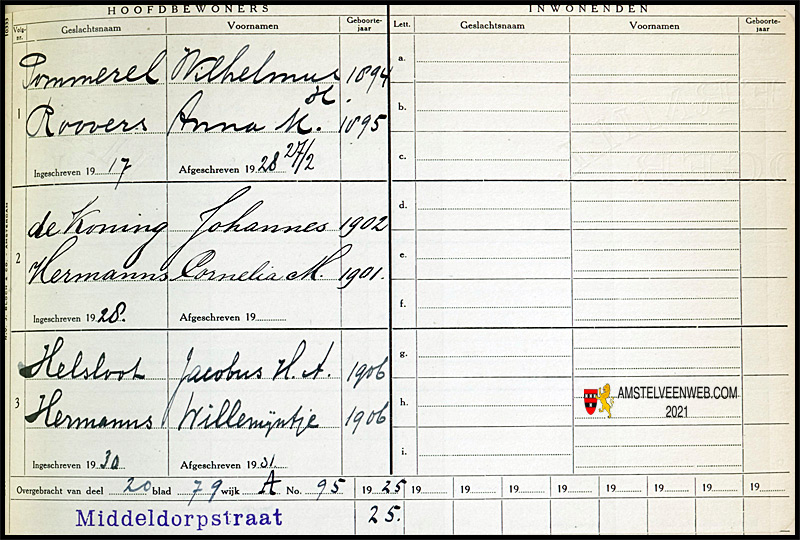 HOOFDBEWONERS INWONENDEN
Volg-nr. Geslachtsnaam Voornamen Geboorte-jaar Lett. Geslachtsnaam Voornamen Geboorte-jaar
1
Pommerel Wilhelmus H. 1894
Roovers Anna M. 1895
Ingeschreven 1917 Afgeschreven 1928 27/2
2
de Koning Johannes 1902
Hermanns Cornelia M. 1901.
Ingeschreven 1928. Afgeschreven 19
3
Helsloot Jacobus H. A. 1906
Hermanns Willemijntje 1906
Ingeschreven 1930 Afgeschreven 1931
a.
b.
c.
d.
e.
f.
g.
h.
i.
AMSTELVEENWEB.COM
2021
Overgebracht van deel 20 blad 79 wijk A No. 95 1925 19 19 19 19 19 19 19 19
Middeldorpstraat 25.